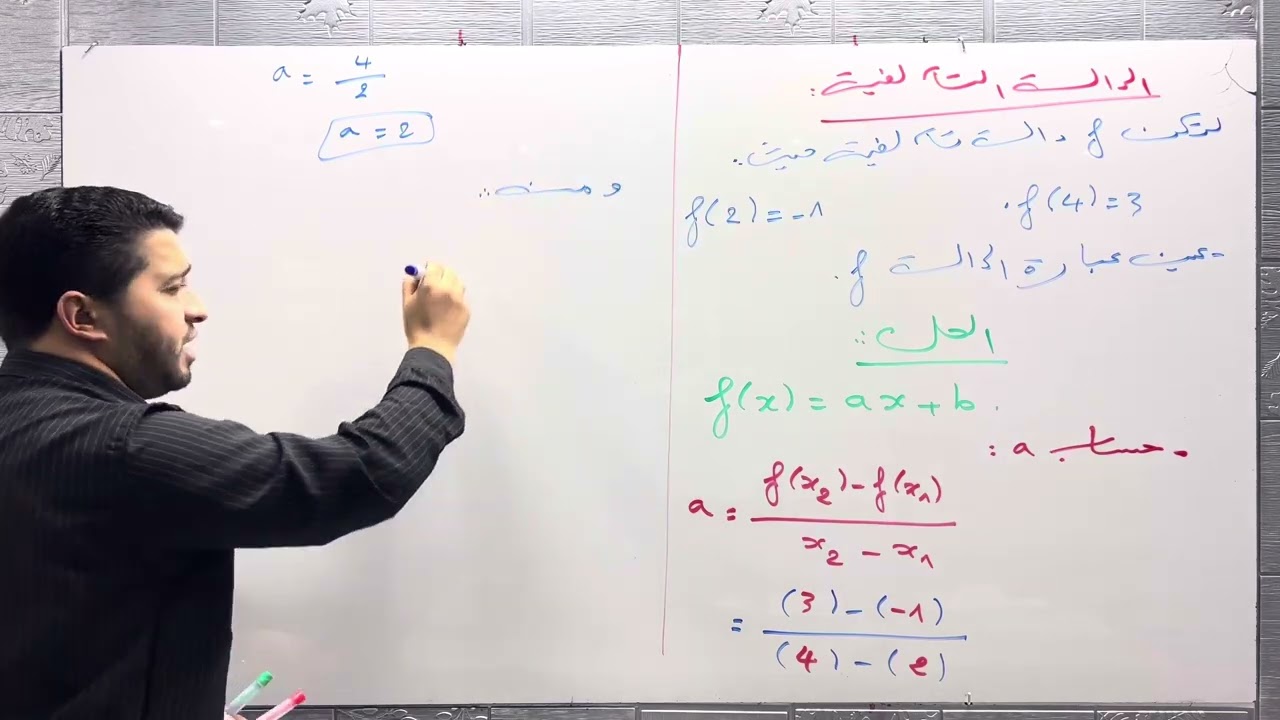 الدالة التآلفية:
لتكن f دالة تآلفية حيث:
f(4)=3 . f(2)=-1
- عين عبارة الدالة f.
الحل:
f(x) = ax+b.
- حساب a:
a = \frac{f(x_2)-f(x_1)}{x_2-x_1}
= \frac{(3)-(-1)}{(4)-(2)}
a = \frac{4}{2}
a = 2
ومنه: